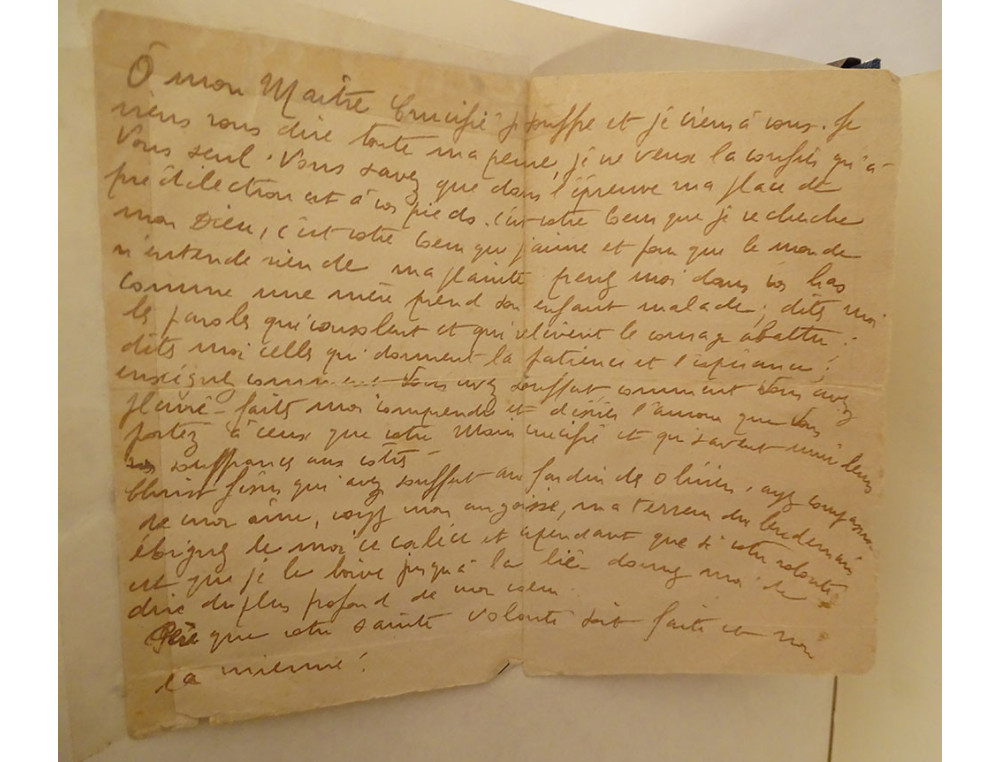 Ô mon Maître Crucifié je souffre et je viens à vous. Je
viens vous dire toute ma peine, je ne veux la confier qu'à
Vous seul. Vous savez que dans l'épreuve ma place de
prédilection est à vos pieds. c'est votre Cœur que je recherche
mon Dieu, c'est votre Cœur que j'aime et pour que le monde
n'entende rien de ma plainte prenez moi dans vos bras
comme une mère prend son enfant malade; dites moi
les paroles qui consolent et qui relèvent le courage abattu:
dites moi celles qui donnent la patience et l'espérance;
enseignez comment vous avez souffert comment vous avez
pleuré - faites moi comprendre et désirer l'amour que vous
portez à ceux que votre Main crucifie et qui savent unir leurs
souffrances aux vôtres
Christ Jésus qui avez souffert au Jardin des Oliviers, ayez compassion
de mon âme, voyez mon angoisse, ma terreur du lendemain
éloignez de moi ce calice et cependant que si votre volonté
est que je le boive jusqu'à la lie donnez moi de
dire du plus profond de mon cœur
Père que votre sainte volonté soit faite et non
la mienne!